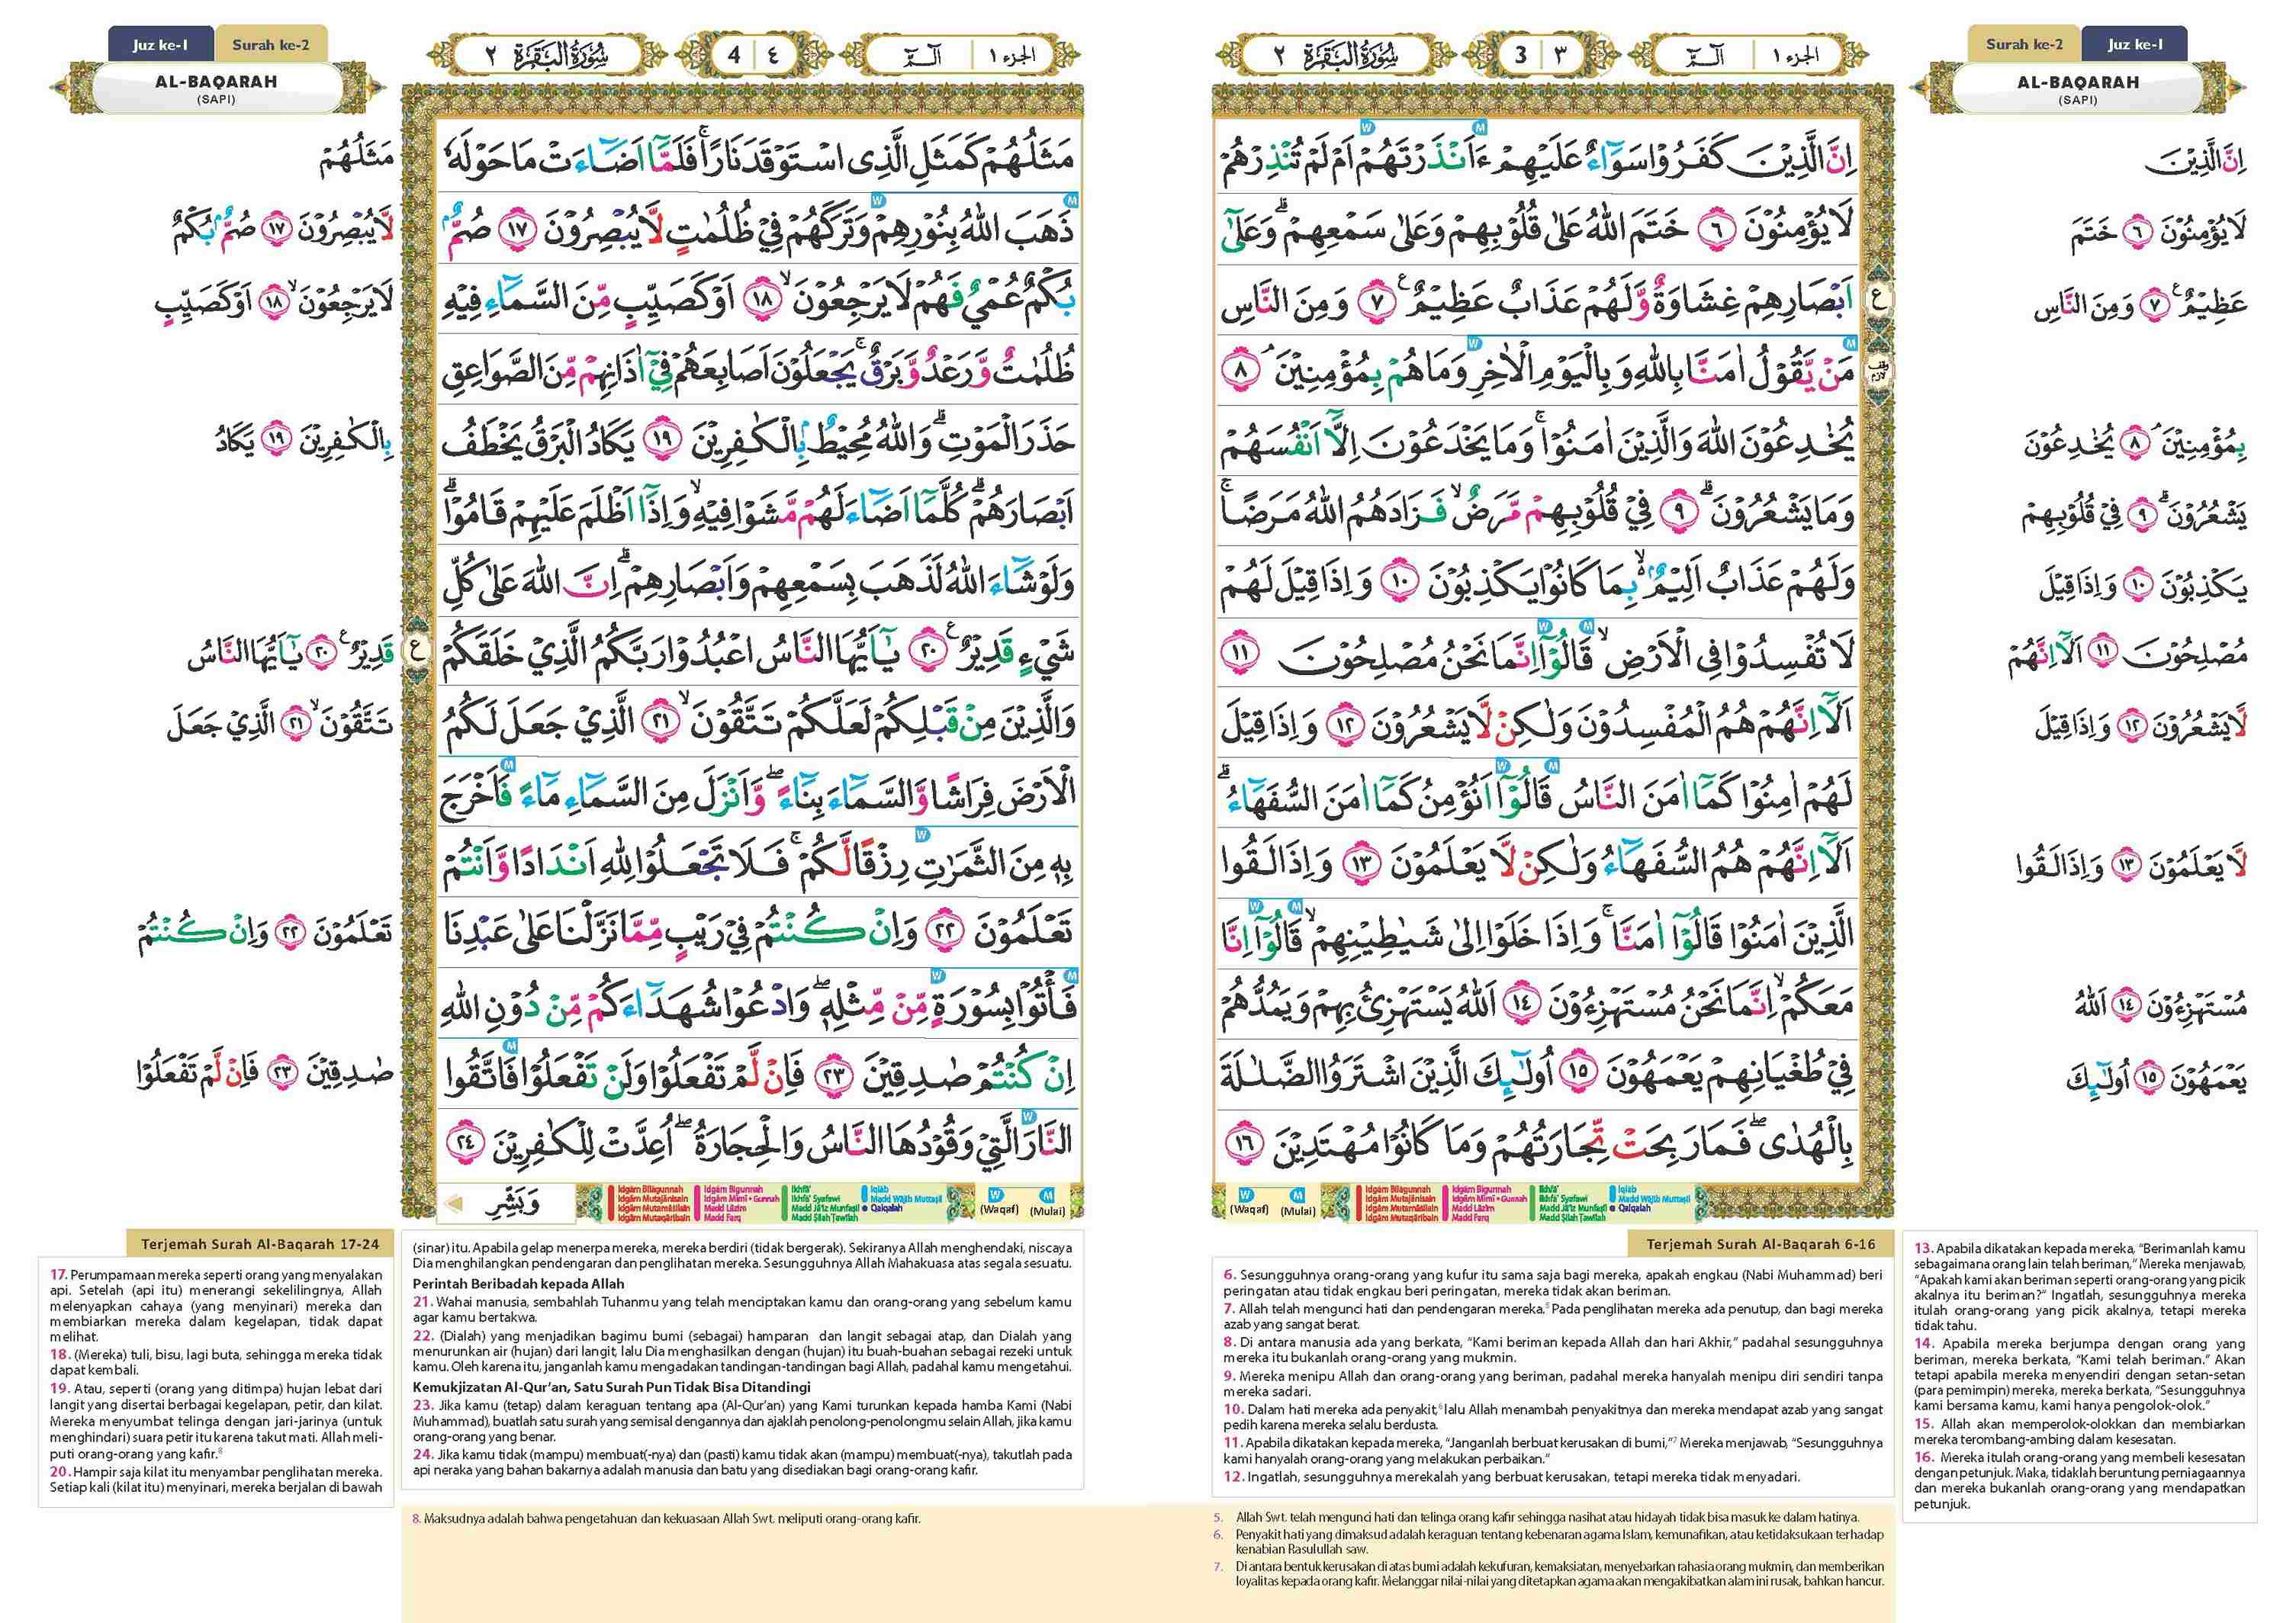 Surah ke-2 Juz ke-1
AL-BAQARAH
(SAPI)
الجزء ١ الٓمّٓ
3 ٣
سُوْرَةُ الْبَقَرَةِ ٢
اِنَّ الَّذِيْنَ كَفَرُوْا سَوَاۤءٌ عَلَيْهِمْ ءَاَنْذَرْتَهُمْ اَمْ لَمْ تُنْذِرْهُمْ
لَا يُؤْمِنُوْنَ ٦ خَتَمَ اللّٰهُ عَلٰى قُلُوْبِهِمْ وَعَلٰى سَمْعِهِمْۗ وَعَلٰٓى
اَبْصَارِهِمْ غِشَاوَةٌ وَّلَهُمْ عَذَابٌ عَظِيْمٌ ࣖ ٧ وَمِنَ النَّاسِ
مَنْ يَّقُوْلُ اٰمَنَّا بِاللّٰهِ وَبِالْيَوْمِ الْاٰخِرِ وَمَا هُمْ بِمُؤْمِنِيْنَۘ ٨
يُخٰدِعُوْنَ اللّٰهَ وَالَّذِيْنَ اٰمَنُوْاۚ وَمَا يَخْدَعُوْنَ اِلَّآ اَنْفُسَهُمْ
وَمَا يَشْعُرُوْنَۗ ٩ فِيْ قُلُوْبِهِمْ مَّرَضٌۙ فَزَادَهُمُ اللّٰهُ مَرَضًاۚ
وَلَهُمْ عَذَابٌ اَلِيْمٌۙ بِمَا كَانُوْا يَكْذِبُوْنَ ١٠ وَاِذَا قِيْلَ لَهُمْ
لَا تُفْسِدُوْا فِى الْاَرْضِۙ قَالُوْٓا اِنَّمَا نَحْنُ مُصْلِحُوْنَ ١١
اَلَآ اِنَّهُمْ هُمُ الْمُفْسِدُوْنَ وَلٰكِنْ لَّا يَشْعُرُوْنَ ١٢ وَاِذَا قِيْلَ
لَهُمْ اٰمِنُوْا كَمَآ اٰمَنَ النَّاسُ قَالُوْٓا اَنُؤْمِنُ كَمَآ اٰمَنَ السُّفَهَاۤءُۗ
اَلَآ اِنَّهُمْ هُمُ السُّفَهَاۤءُ وَلٰكِنْ لَّا يَعْلَمُوْنَ ١٣ وَاِذَا لَقُوا
الَّذِيْنَ اٰمَنُوْا قَالُوْٓا اٰمَنَّاۚ وَاِذَا خَلَوْا اِلٰى شَيٰطِيْنِهِمْۙ قَالُوْٓا اِنَّا
مَعَكُمْۙ اِنَّمَا نَحْنُ مُسْتَهْزِءُوْنَ ١٤ اَللّٰهُ يَسْتَهْزِئُ بِهِمْ وَيَمُدُّهُمْ
فِيْ طُغْيَانِهِمْ يَعْمَهُوْنَ ١٥ اُولٰۤىِٕكَ الَّذِيْنَ اشْتَرَوُا الضَّلٰلَةَ
بِالْهُدٰىۖ فَمَا رَبِحَتْ تِّجَارَتُهُمْ وَمَا كَانُوْا مُهْتَدِيْنَ ١٦
اِنَّ الَّذِيْنَ
لَا يُؤْمِنُوْنَ ٦ خَتَمَ
عَظِيْمٌ ࣖ ٧ وَمِنَ النَّاسِ
بِمُؤْمِنِيْنَۘ ٨ يُخٰدِعُوْنَ
يَشْعُرُوْنَۗ ٩ فِيْ قُلُوْبِهِمْ
يَكْذِبُوْنَ ١٠ وَاِذَا قِيْلَ
مُصْلِحُوْنَ ١١ اَلَآ اِنَّهُمْ
لَّا يَشْعُرُوْنَ ١٢ وَاِذَا قِيْلَ
لَّا يَعْلَمُوْنَ ١٣ وَاِذَا لَقُوا
مُسْتَهْزِءُوْنَ ١٤ اَللّٰهُ
يَعْمَهُوْنَ ١٥ اُولٰۤىِٕكَ
W (Waqaf) M (Mulai)
Idgām Bilāgunnah Idgām Bigunnah Ikhfā' Iqlāb
Idgām Mutajānisain Idgām Mīmī + Gunnah Ikhfā' Syafawi Madd Wājib Muttaṣil
Idgām Mutamāṡilain Madd Lāzim Madd Jā'iz Munfaṣil Qalqalah
Idgām Mutaqāribain Madd Farq Madd Ṣilah Ṭawīlah
Terjemah Surah Al-Baqarah 6-16
6. Sesungguhnya orang-orang yang kufur itu sama saja bagi mereka, apakah engkau (Nabi Muhammad) beri
peringatan atau tidak engkau beri peringatan, mereka tidak akan beriman.
7. Allah telah mengunci hati dan pendengaran mereka.⁵ Pada penglihatan mereka ada penutup, dan bagi mereka
azab yang sangat berat.
8. Di antara manusia ada yang berkata, “Kami beriman kepada Allah dan hari Akhir,” padahal sesungguhnya
mereka itu bukanlah orang-orang yang mukmin.
9. Mereka menipu Allah dan orang-orang yang beriman, padahal mereka hanyalah menipu diri sendiri tanpa
mereka sadari.
10. Dalam hati mereka ada penyakit,⁶ lalu Allah menambah penyakitnya dan mereka mendapat azab yang sangat
pedih karena mereka selalu berdusta.
11. Apabila dikatakan kepada mereka, “Janganlah berbuat kerusakan di bumi,”⁷ Mereka menjawab, “Sesungguhnya
kami hanyalah orang-orang yang melakukan perbaikan.”
12. Ingatlah, sesungguhnya merekalah yang berbuat kerusakan, tetapi mereka tidak menyadari.
13. Apabila dikatakan kepada mereka, “Berimanlah kamu
sebagaimana orang lain telah beriman,” Mereka menjawab,
“Apakah kami akan beriman seperti orang-orang yang picik
akalnya itu beriman?” Ingatlah, sesungguhnya mereka
itulah orang-orang yang picik akalnya, tetapi mereka
tidak tahu.
14. Apabila mereka berjumpa dengan orang yang
beriman, mereka berkata, “Kami telah beriman.” Akan
tetapi apabila mereka menyendiri dengan setan-setan
(para pemimpin) mereka, mereka berkata, “Sesungguhnya
kami bersama kamu, kami hanya pengolok-olok.”
15. Allah akan memperolok-olokkan dan membiarkan
mereka terombang-ambing dalam kesesatan.
16. Mereka itulah orang-orang yang membeli kesesatan
dengan petunjuk. Maka, tidaklah beruntung perniagaannya
dan mereka bukanlah orang-orang yang mendapatkan
petunjuk.
5. Allah Swt. telah mengunci hati dan telinga orang kafir sehingga nasihat atau hidayah tidak bisa masuk ke dalam hatinya.
6. Penyakit hati yang dimaksud adalah keraguan tentang kebenaran agama Islam, kemunafikan, atau ketidaksukaan terhadap
kenabian Rasulullah saw.
7. Di antara bentuk kerusakan di atas bumi adalah kekufuran, kemaksiatan, menyebarkan rahasia orang mukmin, dan memberikan
loyalitas kepada orang kafir. Melanggar nilai-nilai yang ditetapkan agama akan mengakibatkan alam ini rusak, bahkan hancur.
Juz ke-1 Surah ke-2
AL-BAQARAH
(SAPI)
الجزء ١ الٓمّٓ
4 ٤
سُوْرَةُ الْبَقَرَةِ ٢
مَثَلُهُمْ كَمَثَلِ الَّذِى اسْتَوْقَدَ نَارًاۚ فَلَمَّآ اَضَاۤءَتْ مَا حَوْلَهٗ
ذَهَبَ اللّٰهُ بِنُوْرِهِمْ وَتَرَكَهُمْ فِيْ ظُلُمٰتٍ لَّا يُبْصِرُوْنَ ١٧ صُمٌّۢ
بُكْمٌ عُمْيٌ فَهُمْ لَا يَرْجِعُوْنَۙ ١٨ اَوْ كَصَيِّبٍ مِّنَ السَّمَاۤءِ فِيْهِ
ظُلُمٰتٌ وَّرَعْدٌ وَّبَرْقٌۚ يَجْعَلُوْنَ اَصَابِعَهُمْ فِيْٓ اٰذَانِهِمْ مِّنَ الصَّوَاعِقِ
حَذَرَ الْمَوْتِۗ وَاللّٰهُ مُحِيْطٌۢ بِالْكٰفِرِيْنَ ١٩ يَكَادُ الْبَرْقُ يَخْطَفُ
اَبْصَارَهُمْۗ كُلَّمَآ اَضَاۤءَ لَهُمْ مَّشَوْا فِيْهِۙ وَاِذَآ اَظْلَمَ عَلَيْهِمْ قَامُوْاۗ
وَلَوْ شَاۤءَ اللّٰهُ لَذَهَبَ بِسَمْعِهِمْ وَاَبْصَارِهِمْۗ اِنَّ اللّٰهَ عَلٰى كُلِّ
شَيْءٍ قَدِيْرٌ ࣖ ٢٠ يٰٓاَيُّهَا النَّاسُ اعْبُدُوْا رَبَّكُمُ الَّذِيْ خَلَقَكُمْ
وَالَّذِيْنَ مِنْ قَبْلِكُمْ لَعَلَّكُمْ تَتَّقُوْنَۙ ٢١ الَّذِيْ جَعَلَ لَكُمُ
الْاَرْضَ فِرَاشًا وَّالسَّمَاۤءَ بِنَاۤءًۖ وَّاَنْزَلَ مِنَ السَّمَاۤءِ مَاۤءً فَاَخْرَجَ
بِهٖ مِنَ الثَّمَرٰتِ رِزْقًا لَّكُمْۚ فَلَا تَجْعَلُوْا لِلّٰهِ اَنْدَادًا وَّاَنْتُمْ
تَعْلَمُوْنَ ٢٢ وَاِنْ كُنْتُمْ فِيْ رَيْبٍ مِّمَّا نَزَّلْنَا عَلٰى عَبْدِنَا
فَأْتُوْا بِسُوْرَةٍ مِّنْ مِّثْلِهٖۖ وَادْعُوْا شُهَدَاۤءَكُمْ مِّنْ دُوْنِ اللّٰهِ
اِنْ كُنْتُمْ صٰدِقِيْنَ ٢٣ فَاِنْ لَّمْ تَفْعَلُوْا وَلَنْ تَفْعَلُوْا فَاتَّقُوا
النَّارَ الَّتِيْ وَقُوْدُهَا النَّاسُ وَالْحِجَارَةُۖ اُعِدَّتْ لِلْكٰفِرِيْنَ ٢٤
وَبَشِّرِ
مَثَلُهُمْ
لَّا يُبْصِرُوْنَ ١٧ صُمٌّۢ بُكْمٌ
لَا يَرْجِعُوْنَۙ ١٨ اَوْ كَصَيِّبٍ
بِالْكٰفِرِيْنَ ١٩ يَكَادُ
قَدِيْرٌ ࣖ ٢٠ يٰٓاَيُّهَا النَّاسُ
تَتَّقُوْنَۙ ٢١ الَّذِيْ جَعَلَ
تَعْلَمُوْنَ ٢٢ وَاِنْ كُنْتُمْ
صٰدِقِيْنَ ٢٣ فَاِنْ لَّمْ تَفْعَلُوْا
Idgām Bilāgunnah Idgām Bigunnah Ikhfā' Iqlāb
Idgām Mutajānisain Idgām Mīmī + Gunnah Ikhfā' Syafawi Madd Wājib Muttaṣil
Idgām Mutamāṡilain Madd Lāzim Madd Jā'iz Munfaṣil Qalqalah
Idgām Mutaqāribain Madd Farq Madd Ṣilah Ṭawīlah
W (Waqaf) M (Mulai)
Terjemah Surah Al-Baqarah 17-24
17. Perumpamaan mereka seperti orang yang menyalakan
api. Setelah (api itu) menerangi sekelilingnya, Allah
melenyapkan cahaya (yang menyinari) mereka dan
membiarkan mereka dalam kegelapan, tidak dapat
melihat.
18. (Mereka) tuli, bisu, lagi buta, sehingga mereka tidak
dapat kembali.
19. Atau, seperti (orang yang ditimpa) hujan lebat dari
langit yang disertai berbagai kegelapan, petir, dan kilat.
Mereka menyumbat telinga dengan jari-jarinya (untuk
menghindari) suara petir itu karena takut mati. Allah meli-
puti orang-orang yang kafir.⁸
20. Hampir saja kilat itu menyambar penglihatan mereka.
Setiap kali (kilat itu) menyinari, mereka berjalan di bawah
(sinar) itu. Apabila gelap menerpa mereka, mereka berdiri (tidak bergerak). Sekiranya Allah menghendaki, niscaya
Dia menghilangkan pendengaran dan penglihatan mereka. Sesungguhnya Allah Mahakuasa atas segala sesuatu.
Perintah Beribadah kepada Allah
21. Wahai manusia, sembahlah Tuhanmu yang telah menciptakan kamu dan orang-orang yang sebelum kamu
agar kamu bertakwa.
22. (Dialah) yang menjadikan bagimu bumi (sebagai) hamparan dan langit sebagai atap, dan Dialah yang
menurunkan air (hujan) dari langit, lalu Dia menghasilkan dengan (hujan) itu buah-buahan sebagai rezeki untuk
kamu. Oleh karena itu, janganlah kamu mengadakan tandingan-tandingan bagi Allah, padahal kamu mengetahui.
Kemukjizatan Al-Qur’an, Satu Surah Pun Tidak Bisa Ditandingi
23. Jika kamu (tetap) dalam keraguan tentang apa (Al-Qur’an) yang Kami turunkan kepada hamba Kami (Nabi
Muhammad), buatlah satu surah yang semisal dengannya dan ajaklah penolong-penolongmu selain Allah, jika kamu
orang-orang yang benar.
24. Jika kamu tidak (mampu) membuat(-nya) dan (pasti) kamu tidak akan (mampu) membuat(-nya), takutlah pada
api neraka yang bahan bakarnya adalah manusia dan batu yang disediakan bagi orang-orang kafir.
8. Maksudnya adalah bahwa pengetahuan dan kekuasaan Allah Swt. meliputi orang-orang kafir.